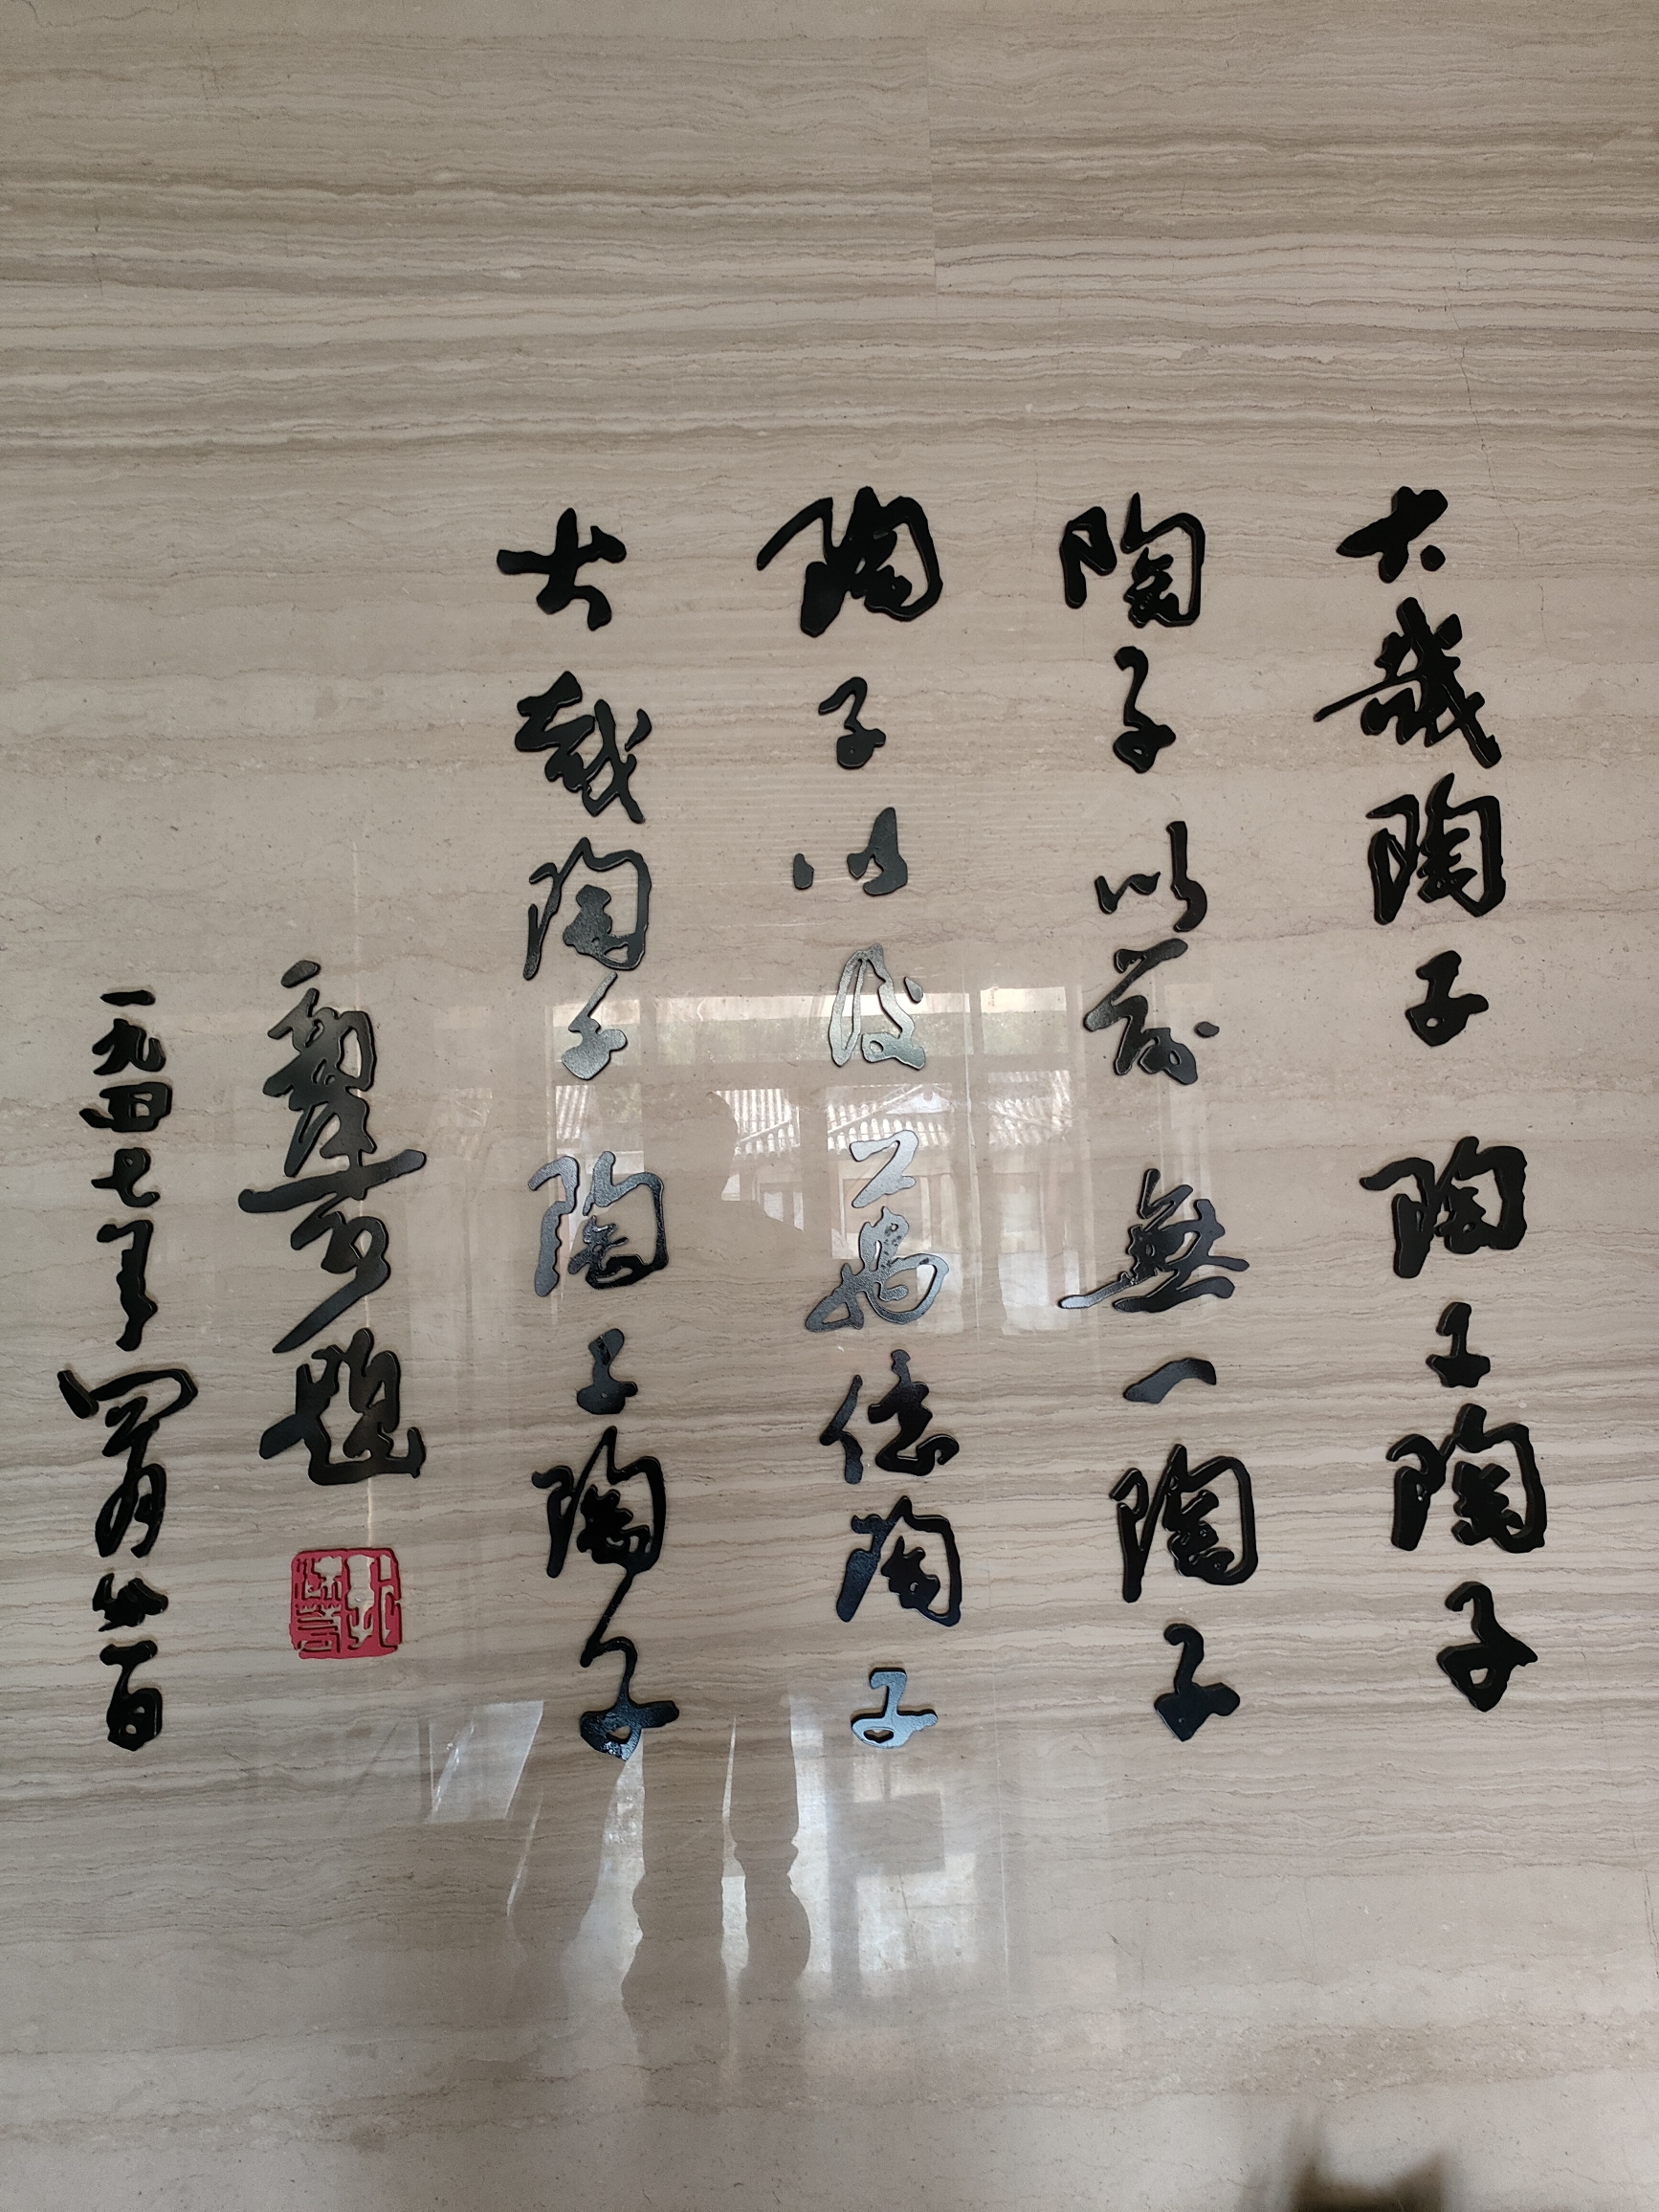 大哉陶子陶子陶子
陶子以前無一陶子
陶子以後一萬億陶子
大哉陶子陶子陶子
郭沫若題
一九四七年四月廿一日